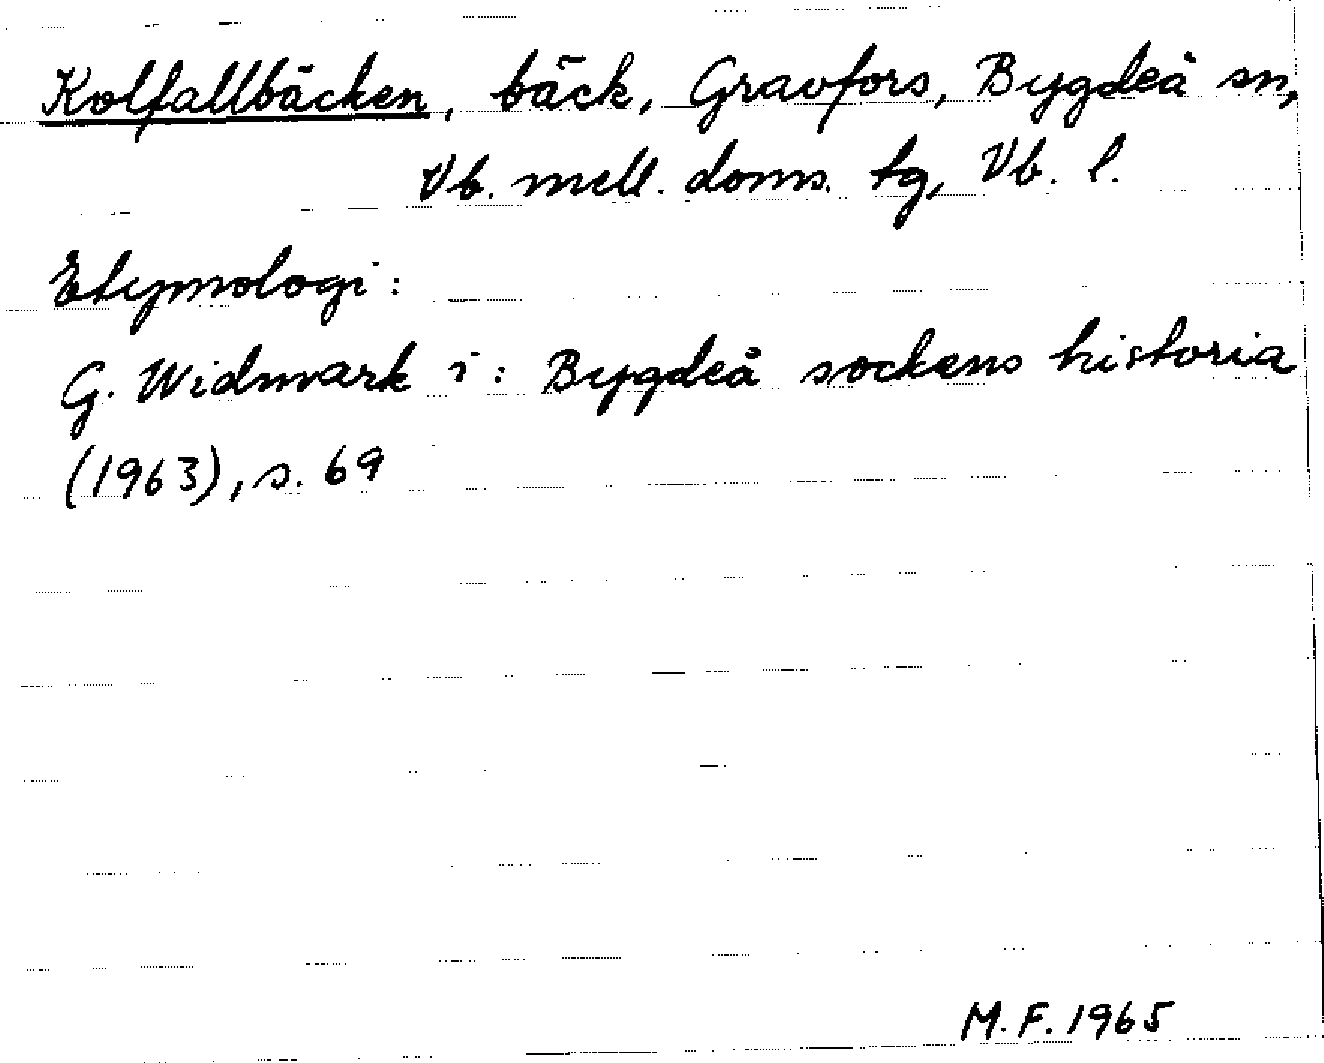 Kolfallbäcken, bäck, Gravfors, Bygdeå sn,
Vb. mell. doms. tg, Vb. l.
Etymologi:
G. Widmark i: Bygdeå sockens historia
(1963), s. 69
M.F. 1965